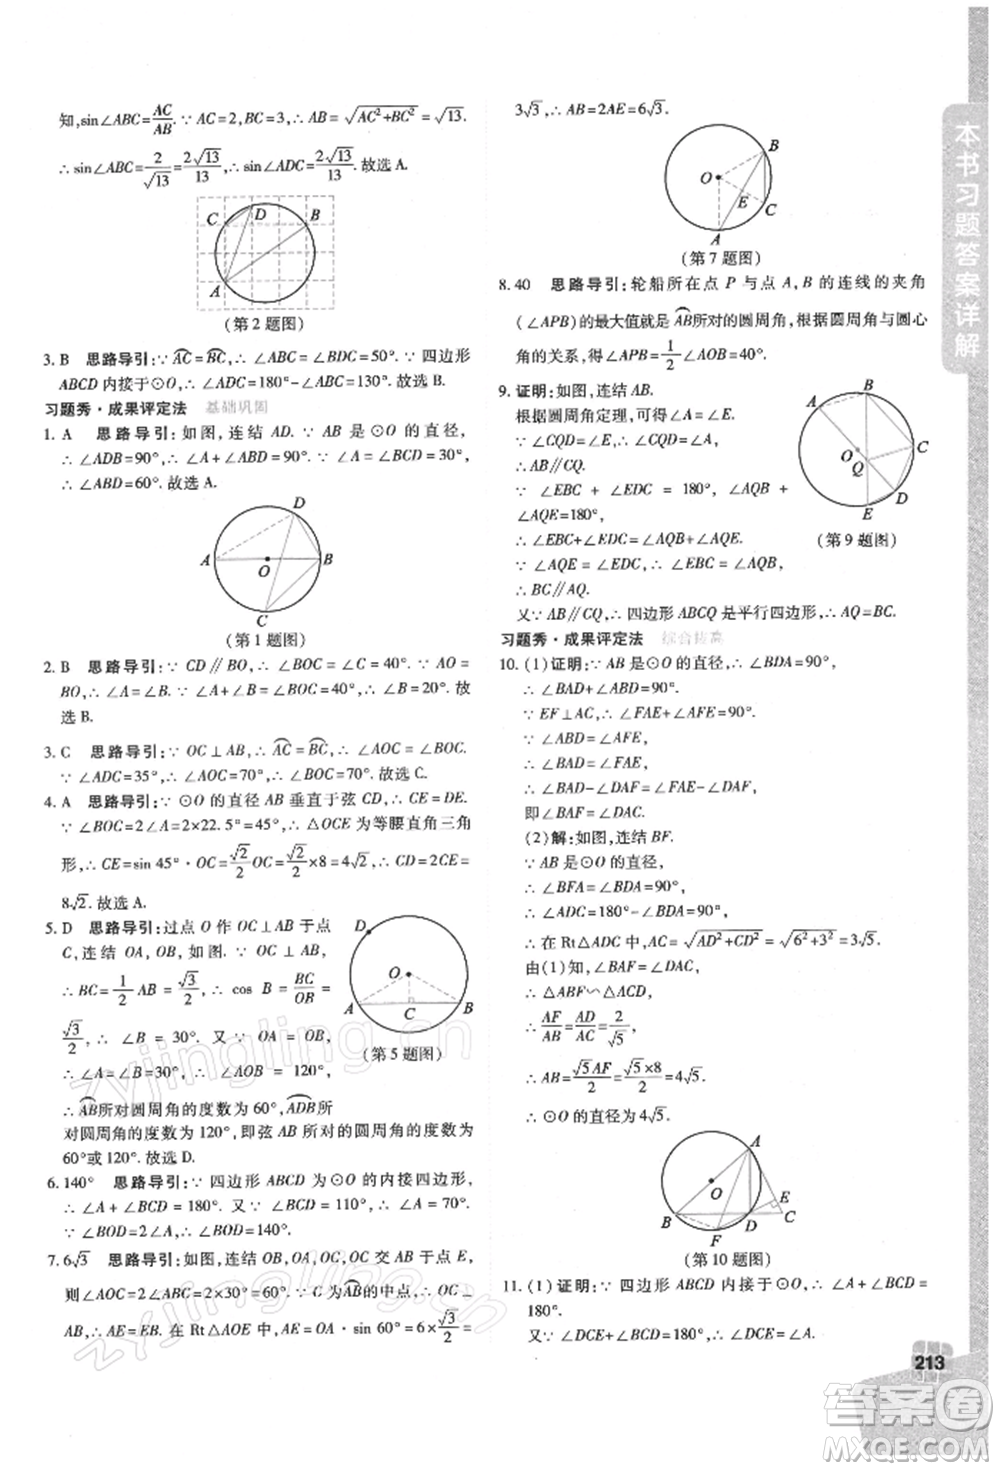 知,sin∠ABC=AC/AB.∵AC=2,BC=3,∴AB=√(AC²+BC²)=√13.
∴sin∠ABC=2/√13=2√13/13.∴sin∠ADC=2√13/13.故选A.
C
D
B
A
(第2题图)
3. B 思路导引:∵AC=BC,∴∠ABC=∠BDC=50°.∵四边形
ABCD内接于⊙O,∴∠ADC=180°-∠ABC=130°.故选B.
习题秀·成果评定法 基础巩固
1. A 思路导引:如图,连结AD.∵AB是⊙O的直径,
∴∠ADB=90°,∴∠A+∠ABD=90°.∵∠A=∠BCD=30°,
∴∠ABD=60°.故选A.
D
A
O
B
C
(第1题图)
2. B 思路导引:∵CD∥BO,∴∠BOC=∠C=40°.∵AO=
BO,∴∠A=∠B.∵∠A+∠B=∠BOC=40°,∴∠B=20°.故
选B.
3. C 思路导引:∵OC⊥AB,∴AC=BC,∴∠AOC=∠BOC.
∵∠ADC=35°,∴∠AOC=70°,∴∠BOC=70°.故选C.
4. A 思路导引:∵⊙O的直径AB垂直于弦CD,∴CE=DE.
∵∠COB=2∠A=2×22.5°=45°,∴△OCE为等腰直角三角
形,∴CE=sin 45°·OC=√2/2OC=√2/2×8=4√2,∴CD=2CE=
8√2.故选A.
5. D 思路导引:过点O作OC⊥AB于点
C,连结OA,OB,如图.∵OC⊥AB,
∴BC=1/2AB=√3/2.∴cos B=BC/OB=
√3/2,∴∠B=30°.又∵OA=OB,
∴∠A=∠B=30°,∴∠AOB=120°,
∴AB所对圆周角的度数为60°,ADB所
对圆周角的度数为120°,即弦AB所对的圆周角的度数为
60°或120°.故选D.
D
O
A
C
B
(第5题图)
6. 140° 思路导引:∵四边形ABCD为⊙O的内接四边形,
∴∠A+∠BCD=180°.又∵∠BCD=110°,∴∠A=70°,
∴∠BOD=2∠A,∴∠BOD=140°.
7. 6√3 思路导引:如图,连结OB,OA,OC交AB于点E,
∴∠AOC=2∠ABC=2×30°=60°.∵C为AB的中点,∴OC⊥
AB,∴AE=EB.在Rt△AOE中,AE=OA·sin 60°=6×√3/2=
3√3,∴AB=2AE=6√3.
B
O
E
C
A
(第7题图)
8. 40 思路导引:轮船所在点P与点A,B的连线的夹角
(∠APB)的最大值就是AB所对的圆周角,根据圆周角与圆心
角的关系,得∠APB=1/2∠AOB=40°.
9. 证明:如图,连结AB.
根据圆周角定理,可得∠A=∠CDQ.
∵∠CQD=∠CDQ=∠A,
∴AB∥CQ.
∵∠EBC+∠EDC=180°,∠CQD+
∠AQE=180°,
∴∠EBC+∠EDC=∠CQD+∠AQE.
∵∠AQE=∠EDC,∴∠EBC=∠CQD,
∴BC∥AQ.
又∵AB∥CQ,∴四边形ABCQ是平行四边形,∴AQ=BC.
B
A
O
Q
C
D
E
(第9题图)
习题秀·成果评定法 综合拔高
10. (1)证明:∵AB是⊙O的直径,∴∠BDA=90°,
∴∠BAD+∠ABD=90°.
∵EF⊥AC,∴∠FAE+∠AFE=90°.
∵∠ABD=∠AFE,
∴∠BAD=∠FAE,
∴∠BAD-∠DAF=∠FAE-∠DAF,
即∠BAF=∠DAC.
(2)解:如图,连结BF.
∵AB是⊙O的直径,
∴∠BFA=∠BDA=90°,
∴∠ADC=180°-∠BDA=90°,
∴在Rt△ADC中,AC=√(AD²+CD²)=√(6²+3²)=3√5.
由(1)知,∠BAF=∠DAC,
∴△ABF∽△ACD,
∴AF/AB=AD/AC=2/√5,
∴AB=√5AF/2=√5×8/2=4√5,
∴⊙O的直径为4√5.
A
O
E
B
D
C
F
(第10题图)
11. (1)证明:∵四边形ABCD内接于⊙O,∴∠A+∠BCD=
180°.
又∵∠DCE+∠BCD=180°,∴∠DCE=∠A.
本书习题答案详解
213
zyjingling.cn
zyjingling.cn
答案圈
MXQE.COM